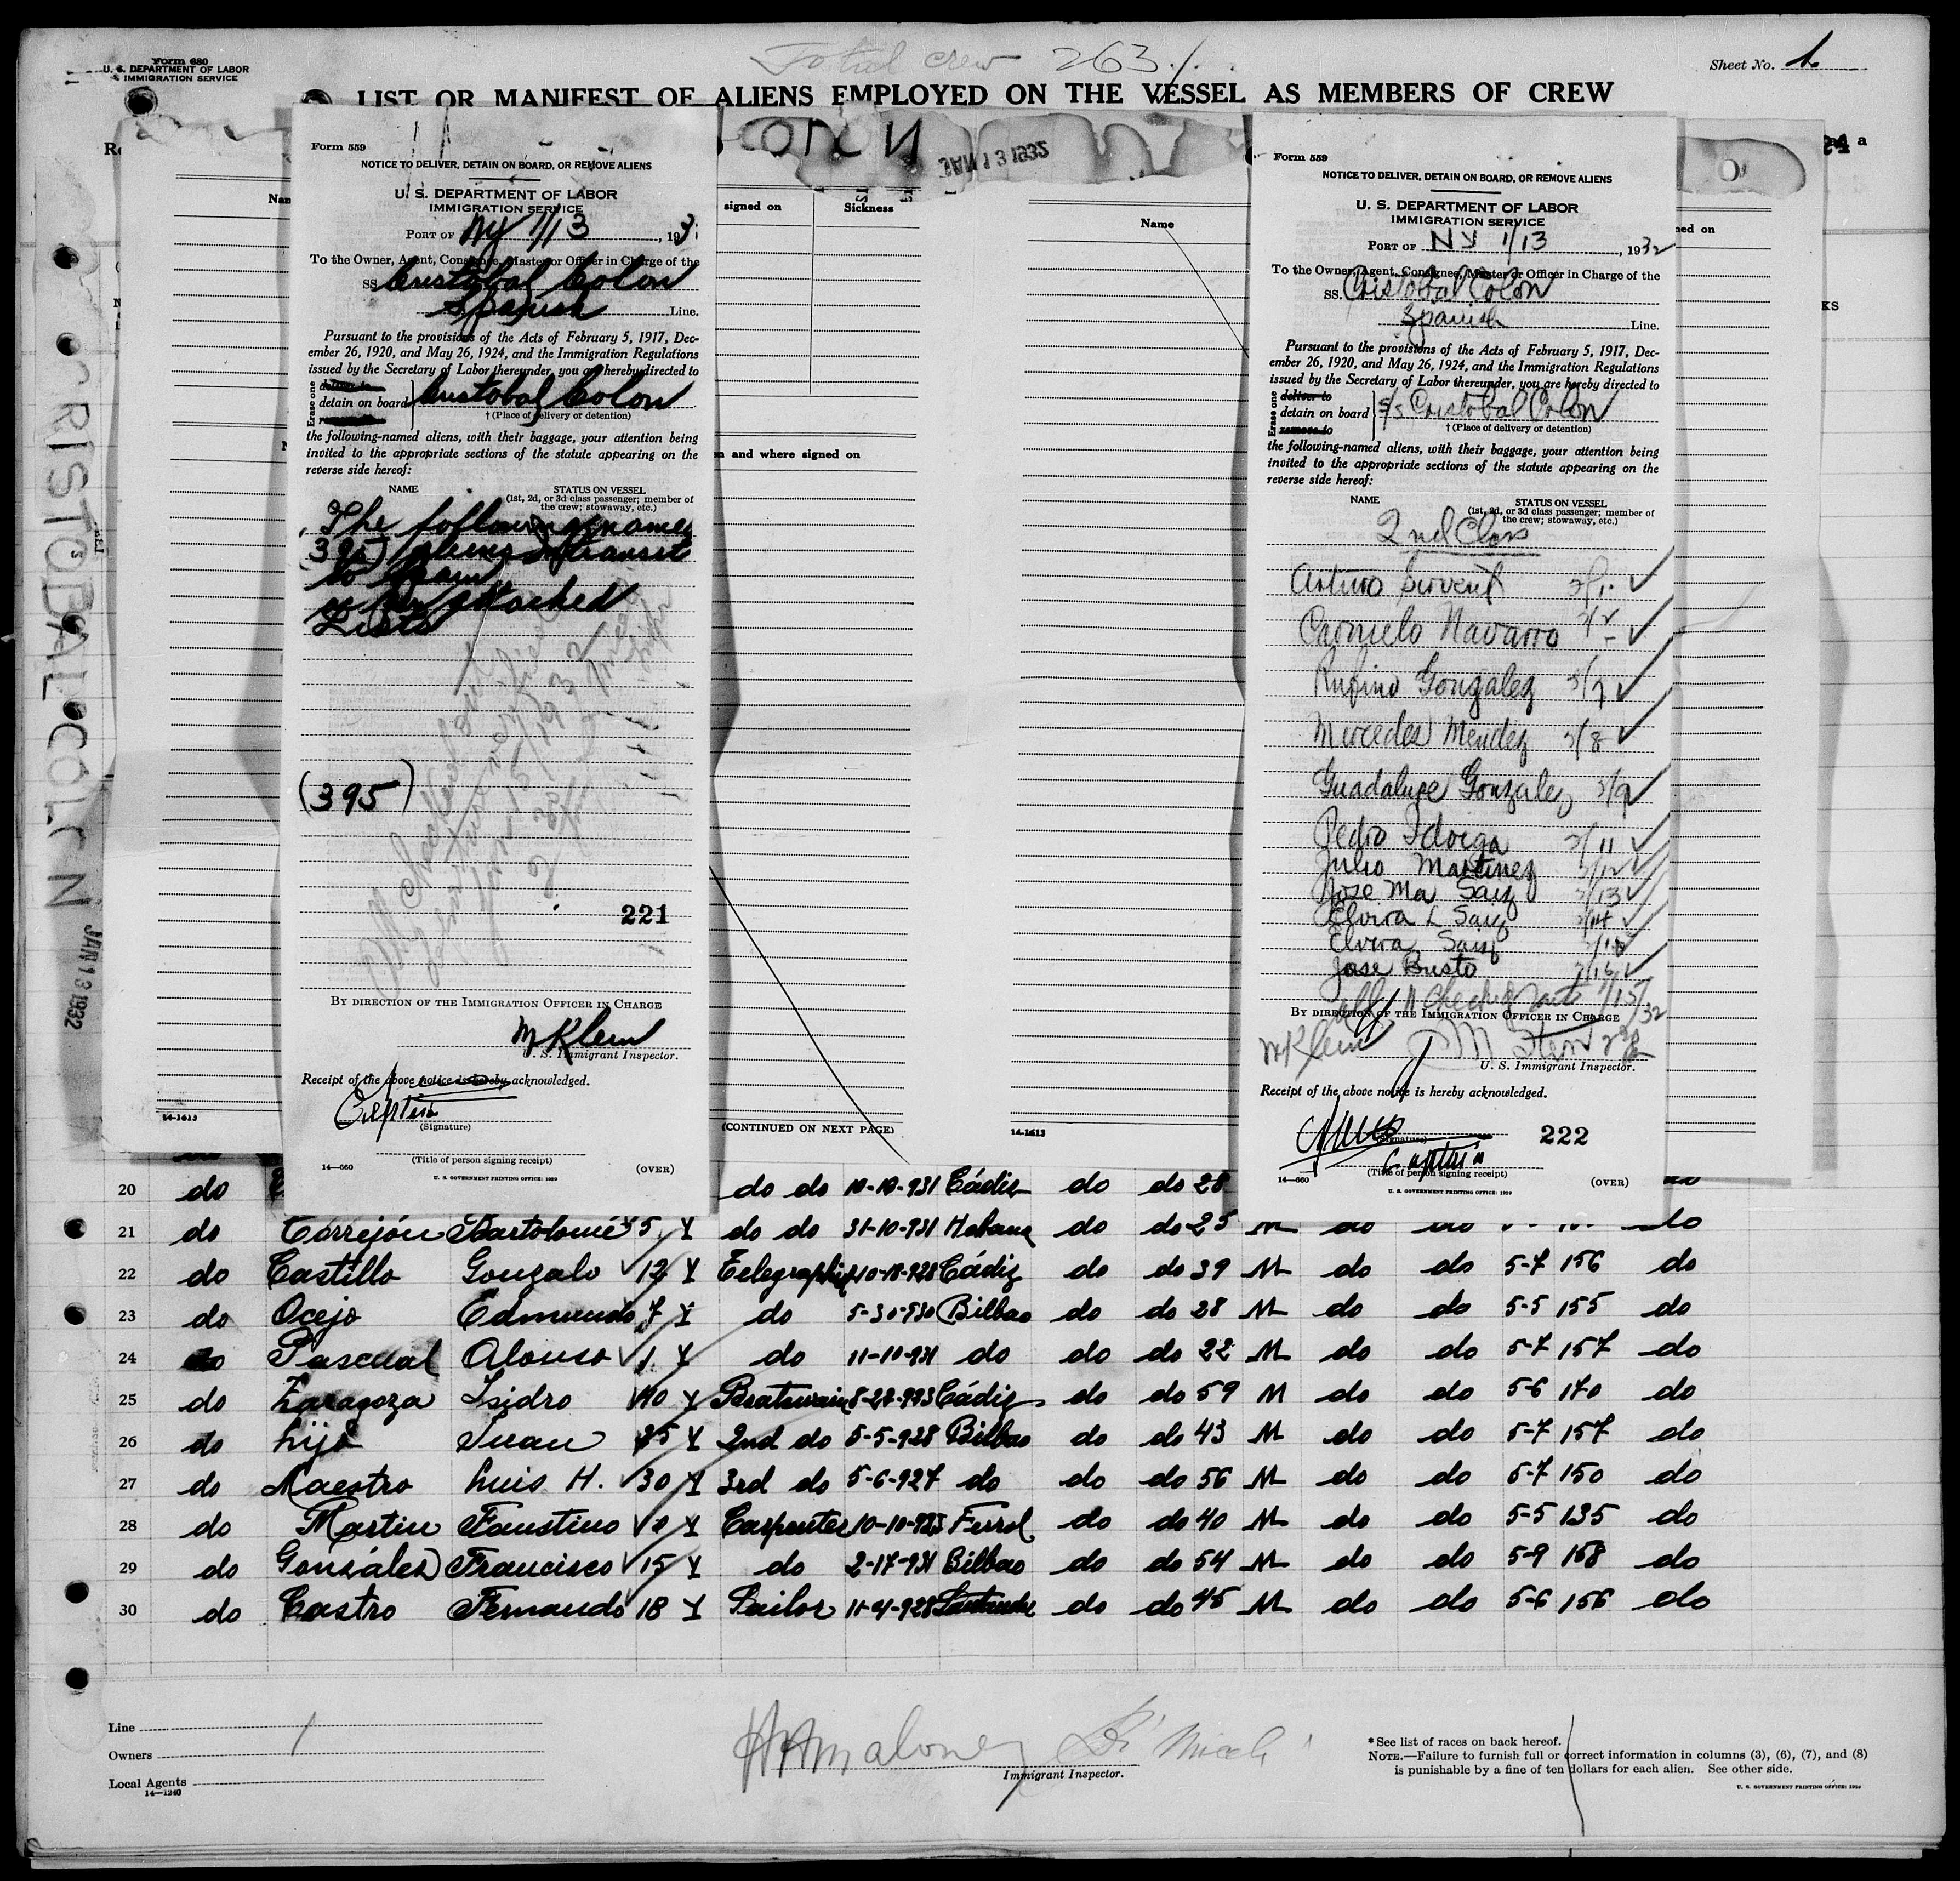 Total crew 263
Form 680
U. S. DEPARTMENT OF LABOR
IMMIGRATION SERVICE
Sheet No. 1
LIST OR MANIFEST OF ALIENS EMPLOYED ON THE VESSEL AS MEMBERS OF CREW
CRISTOBAL COLON
JAN 13 1932
Form 559
NOTICE TO DELIVER, DETAIN ON BOARD, OR REMOVE ALIENS
U. S. DEPARTMENT OF LABOR
IMMIGRATION SERVICE
PORT OF NY 1/13, 193
To the Owner, Agent, Consignee, Master or Officer in Charge of the
SS Cristobal Colon
Spanish Line.
Pursuant to the provisions of the Acts of February 5, 1917, Dec-
ember 26, 1920, and May 26, 1924, and the Immigration Regulations
issued by the Secretary of Labor thereunder, you are hereby directed to
Erase one
deliver to
detain on board Cristobal Colon
† (Place of delivery or detention)
the following-named aliens, with their baggage, your attention being
invited to the appropriate sections of the statute appearing on the
reverse side hereof:
NAME STATUS ON VESSEL
(1st, 2d, or 3d class passenger; member of
the crew; stowaway, etc.)
The following names
(395) aliens in transit
to Spain
as per attached
Lists
(395)
221
BY DIRECTION OF THE IMMIGRATION OFFICER IN CHARGE
M Klein
U. S. Immigrant Inspector.
Receipt of the above notice is hereby acknowledged.
Captain
(Signature)
(Title of person signing receipt)
14—660 (OVER)
U. S. GOVERNMENT PRINTING OFFICE: 1929
14-1613
COLON
JAN 13 1932
signed on Sickness
and where signed on
(CONTINUED ON NEXT PAGE)
Name
14-1613
Form 559
NOTICE TO DELIVER, DETAIN ON BOARD, OR REMOVE ALIENS
U. S. DEPARTMENT OF LABOR
IMMIGRATION SERVICE
PORT OF NY 1/13, 1932
To the Owner, Agent, Consignee, Master or Officer in Charge of the
SS. Cristobal Colon
Spanish Line.
Pursuant to the provisions of the Acts of February 5, 1917, Dec-
ember 26, 1920, and May 26, 1924, and the Immigration Regulations
issued by the Secretary of Labor thereunder, you are hereby directed to
Erase one
deliver to
detain on board S/S Cristobal Colon
remove to
† (Place of delivery or detention)
the following-named aliens, with their baggage, your attention being
invited to the appropriate sections of the statute appearing on the
reverse side hereof:
NAME STATUS ON VESSEL
(1st, 2d, or 3d class passenger; member of
the crew; stowaway, etc.)
2nd Class
Arturo Sirvent
Carmelo Navarro
Rufino Gonzalez 3/7
Mercedes Mendez 3/8
Guadalupe Gonzalez 3/9
Pedro Idoiga 3/11
Julio Martinez 3/12
Jose Ma Saiz 3/13
Elvira L Saiz 3/14
Elvira Saiz
Jose Busto 3/16
all 11 checked 1/15/32
BY DIRECTION OF THE IMMIGRATION OFFICER IN CHARGE
M Klein
U. S. Immigrant Inspector.
Receipt of the above notice is hereby acknowledged.
(Signature)
222
Captain
(Title of person signing receipt)
14—660 (OVER)
U. S. GOVERNMENT PRINTING OFFICE: 1929
20 do do do 10-10-931 Cádiz do do 28
21 do Correjón Bartolomé 5 Y do do 31-10-931 Habana do do 25 M do do do
22 do Castillo Gonzalo 12 Y Telegraphist 10-18-928 Cádiz do do 39 M do do 5-7 156 do
23 do Ocejo Edmundo 7 Y do 5-30-930 Bilbao do do 28 M do do 5-5 155 do
24 do Pascual Alonso 1 Y do 11-11-931 do do do 22 M do do 5-7 157 do
25 do Zaragoza Isidro 40 Y Boatswain 8-22-923 Cádiz do do 59 M do do 5-6 170 do
26 do Lijó Juan 25 Y 2nd do 5-5-928 Bilbao do do 43 M do do 5-7 157 do
27 do Maestro Luis H. 30 Y 3rd do 5-6-927 do do do 56 M do do 5-7 150 do
28 do Martin Faustino Y Carpenter 10-10-923 Ferrol do do 40 M do do 5-5 135 do
29 do González Francisco 15 Y do 2-17-931 Bilbao do do 54 M do do 5-9 168 do
30 do Castro Fernando 18 Y Sailor 11-21-928 Santander do do 45 M do do 5-6 156 do
Line
Owners
Local Agents
14—1240
HAMaloney
Immigrant Inspector.
* See list of races on back hereof.
NOTE.—Failure to furnish full or correct information in columns (3), (6), (7), and (8)
is punishable by a fine of ten dollars for each alien. See other side.
U. S. GOVERNMENT PRINTING OFFICE: 1929